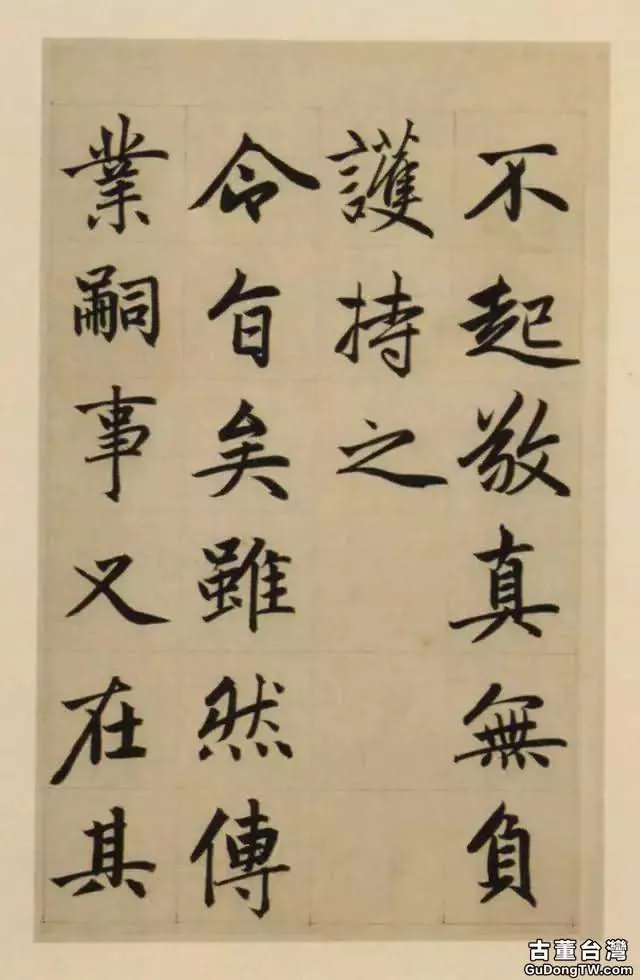 不起敬真無負
護持之
令旨矣雖然傳
業嗣事又在其
古董台灣
GuDongTW.com